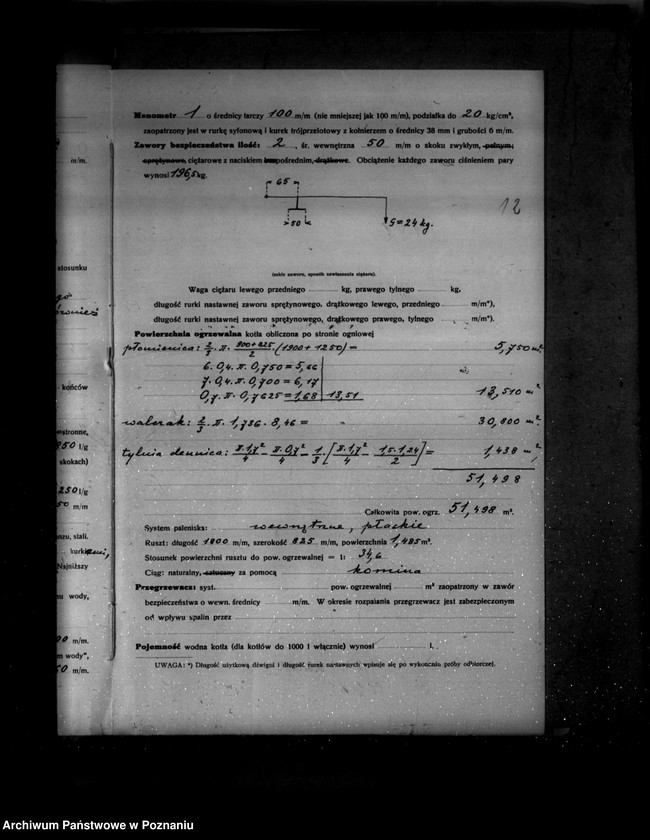 Manometr 1 o średnicy tarczy 100 m/m (nie mniejszej jak 100 m/m), podziałka do 20 kg/cm²,
zaopatrzony jest w rurkę syfonową i kurek trójprzelotowy z kołnierzem o średnicy 38 mm i grubości 6 m/m.
m/m.
Zawory bezpieczeństwa ilość: 2, śr. wewnętrzna 50 m/m o skoku zwykłym, pełnym,
sprężynowe, ciężarowe z naciskiem bezpośrednim, drążkowe. Obciążenie każdego zaworu ciśnieniem pary
wynosi 196,5 kg.
65
12
50
G=24 kg.
stosunku
(szkic zaworu, sposób zawieszenia ciężaru).
Waga ciężaru lewego przedniego kg, prawego tylnego kg,
długość rurki nastawnej zaworu sprężynowego, drążkowego lewego, przedniego m/m*),
długość rurki nastawnej zaworu sprężynowego, drążkowego prawego, tylnego m/m*).
Powierzchnia ogrzewalna kotła obliczona po stronie ogniowej
płomienica: 2/3 . π . 900+825/2 . (1900+1250) = 5,750 m².
6. 0,4. π. 0,750 = 5,66
7. 0,4. π. 0,700 = 6,17
końców
0,7. π. 0,7625 = 1,68 13,51 13,510 m²
walczak: 2/3 . π . 1,736 . 8,46 = 30,800 m².
stronne,
850 t/g
tylnia dennica: π.1,7²/4 - π.0,7²/4 - 1/3 [π.1,7²/4 - 1,5.1,24/2] = 1,438 m².
skokach)
51,498
250 t/g
50 m/m
Całkowita pow. ogrz. 51,498 m².
System paleniska: wewnętrzne, płaskie
stali.
Ruszt: długość 1800 m/m, szerokość 825 m/m, powierzchnia 1,485 m².
Stosunek powierzchni rusztu do pow. ogrzewalnej = 1: 34,6
Najniższy
Ciąg: naturalny, sztuczny za pomocą komina
Przegrzewacz: syst. pow. ogrzewalnej m² zaopatrzony w zawór
wody,
bezpieczeństwa o wewn. średnicy m/m. W okresie rozpalania przegrzewacz jest zabezpieczonym
od wpływu spalin przez
m/m.
Pojemność wodna kotła (dla kotłów do 1000 l włącznie) wynosi l.
m wody",
m/m.
UWAGA: *) Długość użytkową dźwigni i długość rurek nastawnych wpisuje się po wykonaniu próby odbiorczej.
Archiwum Państwowe w Poznaniu